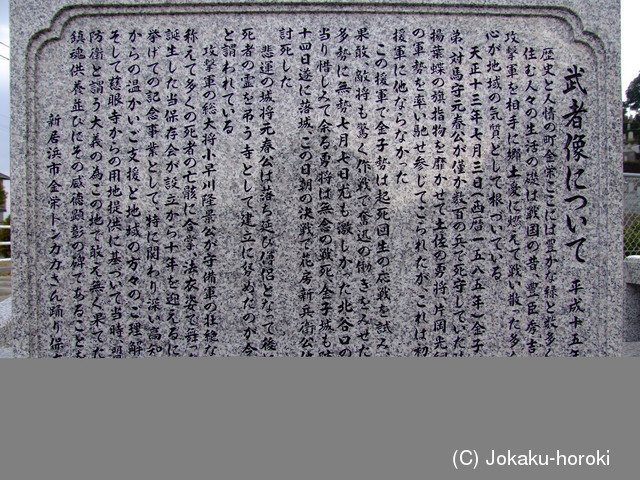 武者像について
平成十五年
歴史と人情の町金栄ここには豊かな緑と数多く
住む人々の生活の礎は戦国の昔、豊臣秀吉
攻撃軍を相手に郷土愛に燃えて戦い散った多
心が地域の気質として根づいている
天正十三年七月三日(西暦一五八五年)金子
弟、対馬守元春公が僅か数百の兵で死守していた
揚葉蝶の旗指物を靡かせて土佐の勇将、片岡光綱
の軍勢を率い馳せ参じてこられたが、これは初
援軍に他ならなかった
この援軍で金子勢は起死回生の応戦を試み
果敢、敵将も驚く作戦で奮迅の働きをみせた
多勢に無勢七月七日尤も激しかった北谷口の
当り惜しみて余る勇将は無念の戦死、金子城も
十四日遂に落城、この日朝の決戦で花房新兵衛公
討死した
悲運の城将元春公は落ち延び僧侶となって後
死者の霊を弔う寺として建立に努めたのが今
と謂われている
攻撃軍の総大将小早川隆景公が守備軍の壮絶な
称えて多くの死者の亡骸に合掌、法衣姿で舞っ
誕生した当保存会が設立から十年を迎えるに
挙げての記念事業として、特に関わり深い高知
からの温かいご支援と地域の方々のご理解
そして慈眼寺からの用地提供に基づいて当時、盟
防衛と謂う大義の為この地で敢え無く果てた
鎮魂供養並びにその威徳顕彰の碑であること
新居浜市金栄トンカカさん踊り保
(C) Jokaku-horoki